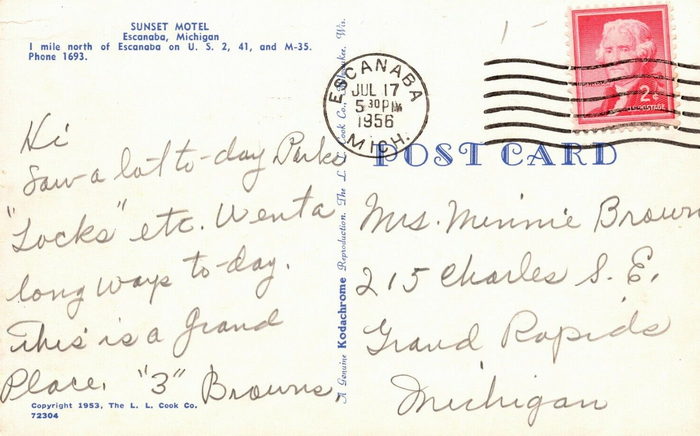 SUNSET MOTEL
Escanaba, Michigan
1 mile north of Escanaba on U. S. 2, 41, and M-35.
Phone 1693.
Hi
Saw a lot to-day Parks
"Locks" etc. Went a
long ways to-day.
This is a grand
Place. "3" Browns.
Copyright 1953, The L. L. Cook Co.
72304
A Genuine Kodachrome Reproduction. The L. L. Cook Co., Milwaukee, Wis.
ESCANABA
JUL 17
5 30 PM
1956
MICH.
2¢
POSTAGE
POST CARD
Mrs. Minnie Brown
215 Charles S. E.
Grand Rapids
Michigan